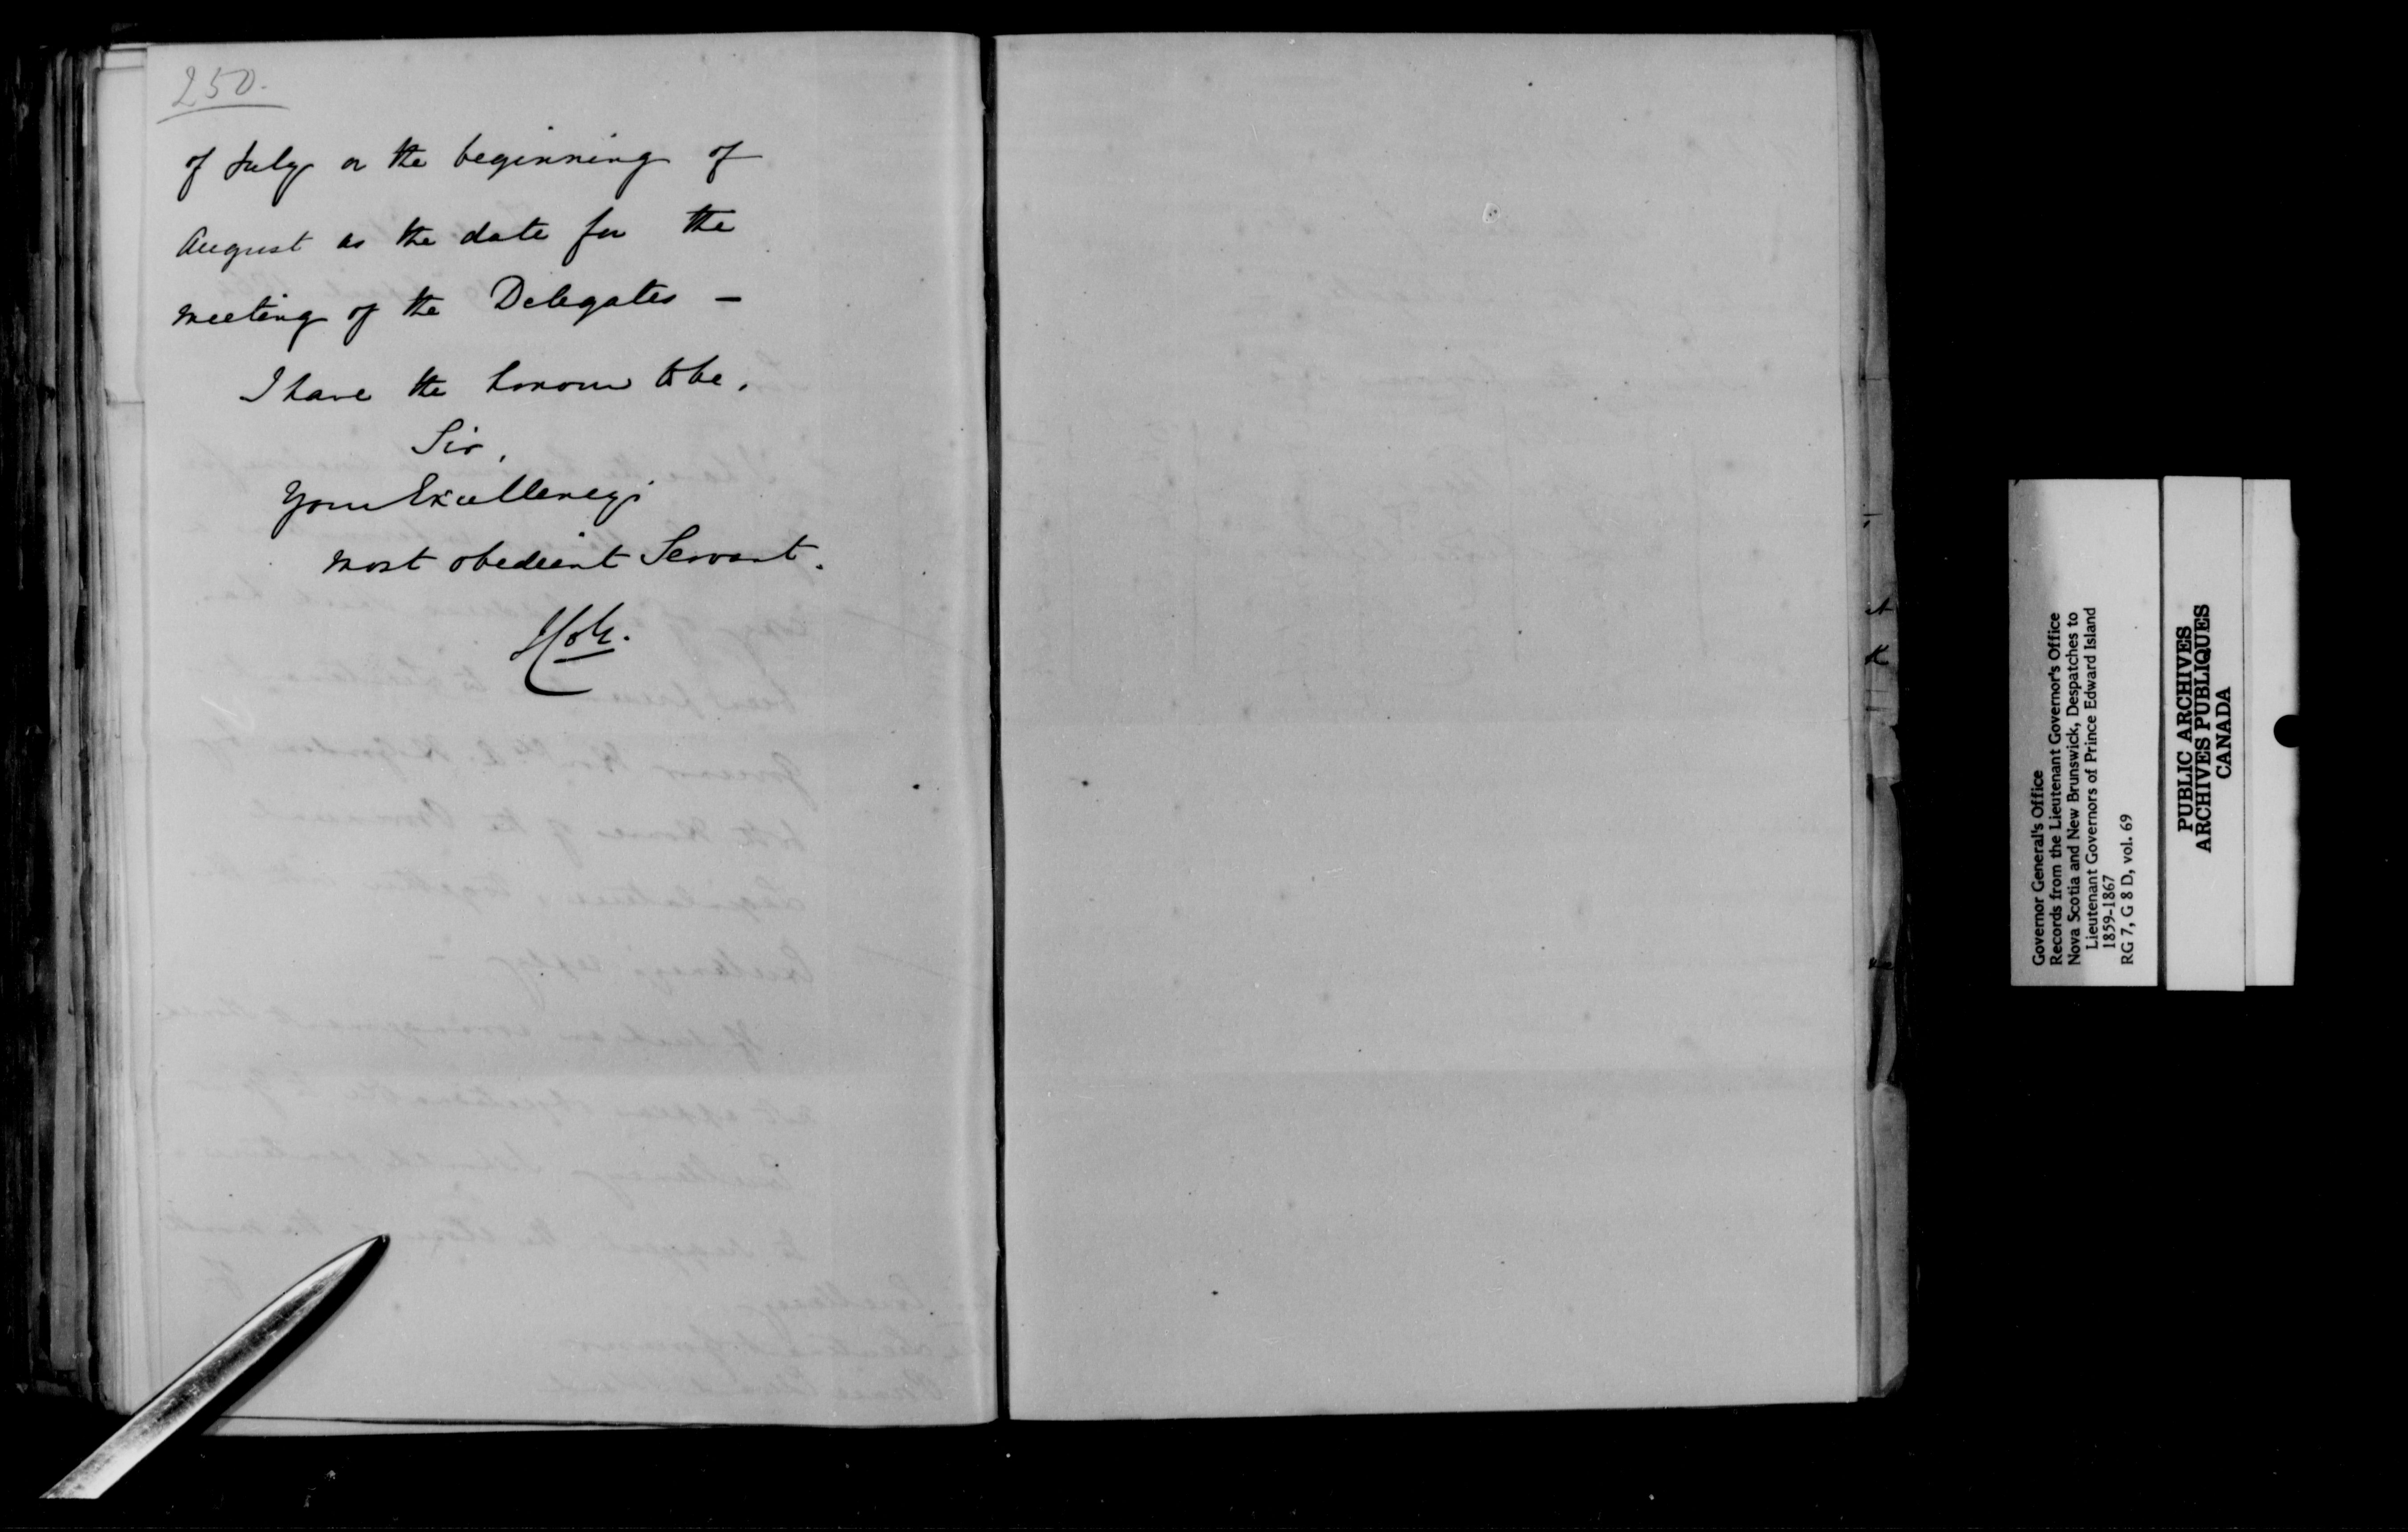 250.
of July or the beginning of
August as the date for the
meeting of the Delegates —
I have the honour to be,
Sir,
Your Excellency's
most obedient Servant.
Governor General's Office
Records from the Lieutenant Governor's Office
Nova Scotia and New Brunswick, Despatches to
Lieutenant Governors of Prince Edward Island
1859-1867
RG 7, G 8 D, vol. 69
PUBLIC ARCHIVES
ARCHIVES PUBLIQUES
CANADA